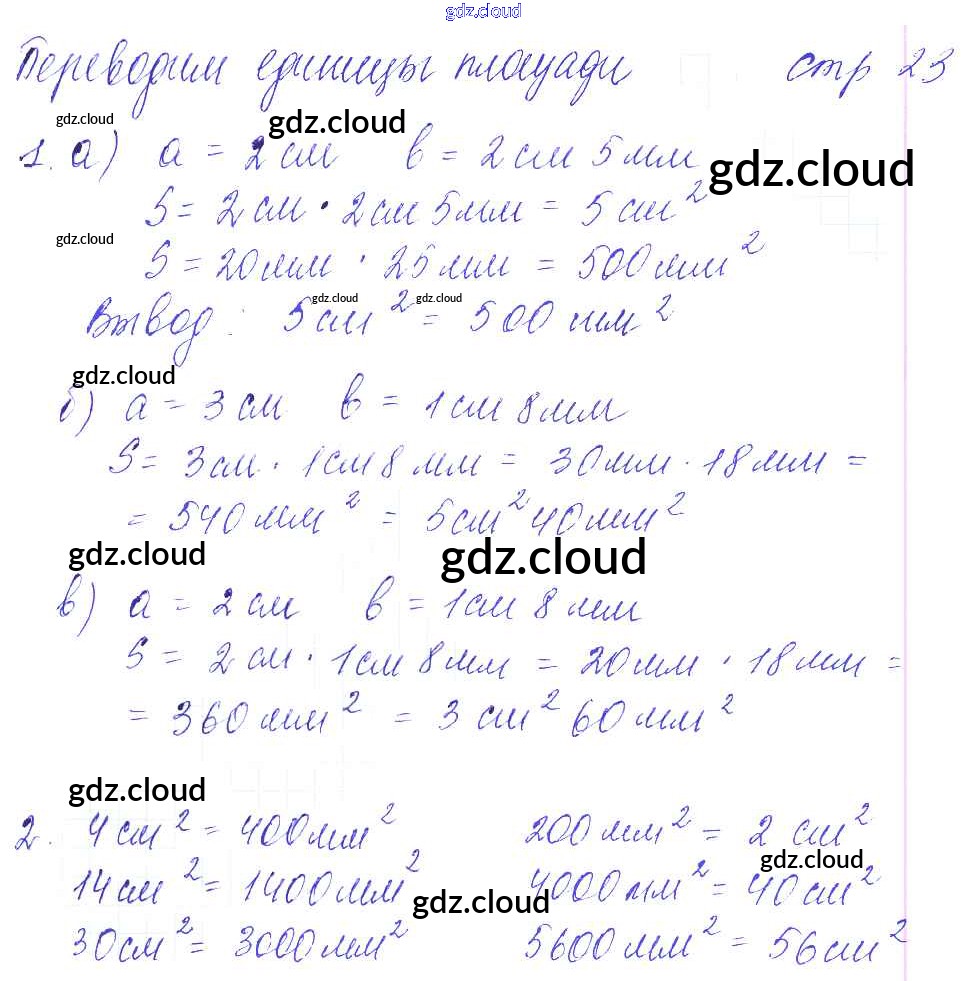 gdz.cloud
Переводим единицы площади стр 23
gdz.cloud gdz.cloud
1. а) a = 2 см b = 2 см 5 мм gdz.cloud
S = 2 см · 2 см 5 мм = 5 см²
gdz.cloud
S = 20 мм · 25 мм = 500 мм²
gdz.cloud gdz.cloud
Вывод: 5 см² = 500 мм²
gdz.cloud
б) a = 3 см b = 1 см 8 мм
S = 3 см · 1 см 8 мм = 30 мм · 18 мм =
= 540 мм² = 5 см² 40 мм²
gdz.cloud gdz.cloud
в) a = 2 см b = 1 см 8 мм
S = 2 см · 1 см 8 мм = 20 мм · 18 мм =
= 360 мм² = 3 см² 60 мм²
gdz.cloud
2. 4 см² = 400 мм² 200 мм² = 2 см²
gdz.cloud
14 см² = 1400 мм² 4000 мм² = 40 см²
gdz.cloud
30 см² = 3000 мм² 5600 мм² = 56 см²